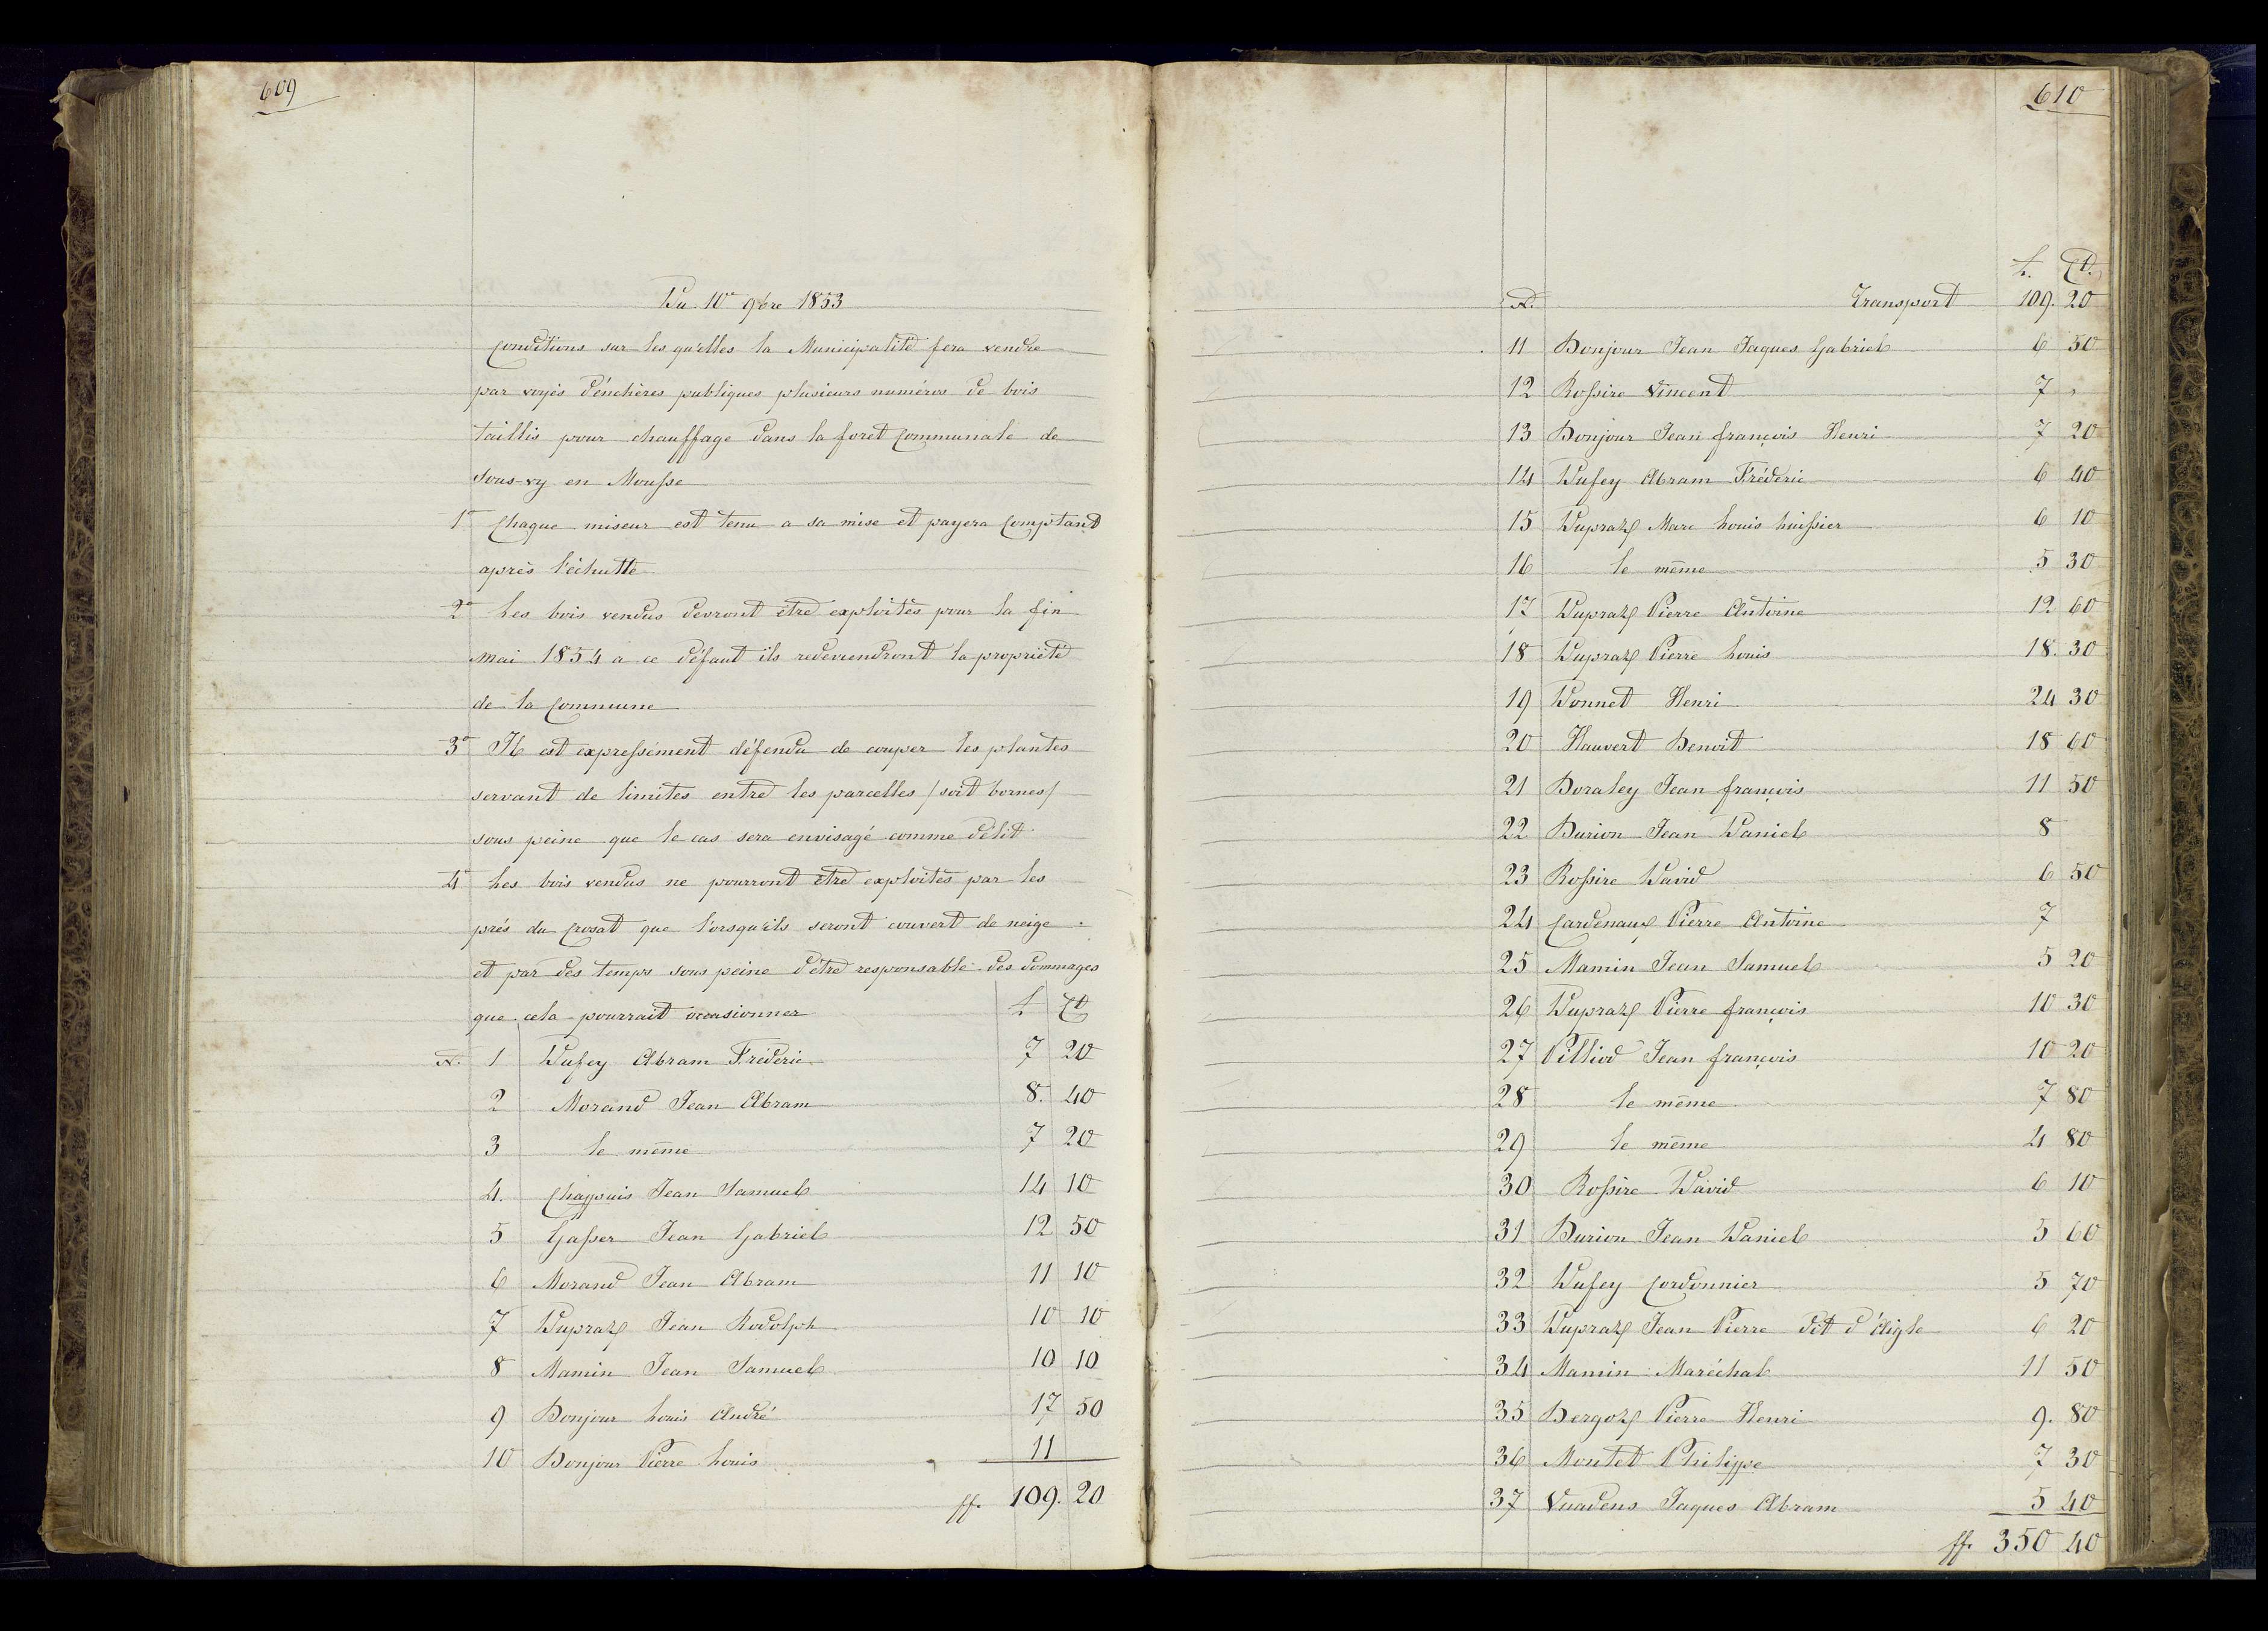 609
Du 10e 9bre 1853
Conditions sur les qu'elles la Municipalité fera vendre
par voyes d'énchères publiques plusieurs numéros de bois
taillis pour chauffage dans la foret Communale de
Sous-vy en Mousse
1o Chaque miseur est tenu a sa mise et payera Comptant
après l'échutte
2o Les bois vendus devront être exploités pour la fin
mai 1854 a ce défaut ils redeviendront la propriété
de la Commune
3o Il est expressément défendu de couper les plantes
servant de limites entre les parcelles /soit bornes/
sous peine que le cas sera envisagé comme délit
4o Les bois vendus ne pourront être exploités par les
prés du Crosat que l'orsqu'ils seront couvert de neige
et par des temps sous peine d'être responsable des dommages
que cela pourrait occasionner f. Ct
N. 1 Dufey Abram Fréderic 7 20
2 Morand Jean Abram 8. 40
3 le même 7 20
4. Chappuis Jean Samuel 14 10
5 Gasser Jean Gabriel 12 50
6 Morand Jean Abram 11 10
7 Dupraz Jean Rodolph 10 10
8 Mamin Jean Samuel 10 10
9 Bonjour Louis André 17 50
10 Bonjour Pierre Louis 11
ff. 109. 20
610
f. Ct.
N. Transport 109. 20
11 Bonjour Jean Jaques Gabriel 6 50
12 Rossire Vincent 7 "
13 Bonjour Jean françois Henri 7 20
14 Dufey Abram Fréderic 6 40
15 Dupraz Marc Louis huissier 6 10
16 le même 5 30
17 Dupraz Pierre Antoine 12 60
18 Dupraz Pierre Louis 18. 30
19 Donnet Henri 24 30
20 Hauvert Benoit 18 60
21 Boraley Jean françois 11 50
22 Burion Jean Daniel 8
23 Rossire David 6 50
24 Cardenaux Pierre Antoine 7
25 Mamin Jean Samuel 5 20
26 Dupraz Pierre françois 10 30
27 Pilliod Jean françois 10 20
28 le même 7 80
29 le même 4 80
30 Rossire David 6 10
31 Burion Jean Daniel 5 60
32 Dufey Cordonnier 5 70
33 Dupraz Jean Pierre dit d'Aigle 6 20
34 Mamin Maréchal 11 50
35 Bergoz Pierre Henri 9. 80
36 Montet Philippe 7 30
37 Vuadens Jaques Abram 5 40
ff. 350 40